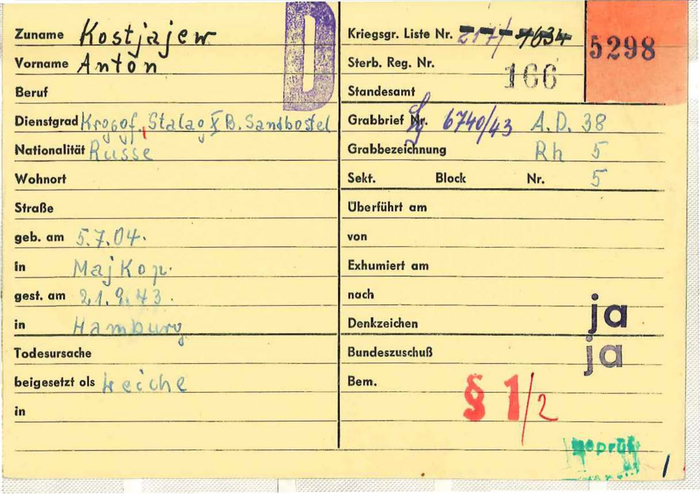 Zuname Kostjajew
Vorname Anton
Beruf
Dienstgrad Krggf. Stalag X B. Sandbostel
Nationalität Russe
Wohnort
Straße
geb. am 5.7.04.
in Majkop.
gest. am 21.9.43.
in Hamburg
Todesursache
beigesetzt als Leiche
in
D
Kriegsgr. Liste Nr. 217/ 4634
5298
Sterb. Reg. Nr. 166
Standesamt
Grabbrief Nr. 6740/43 A.D. 38
Grabbezeichnung Rh 5
Sekt. Block Nr. 5
Überführt am
von
Exhumiert am
nach
Denkzeichen ja
Bundeszuschuß ja
Bem. § 1/2
geprüft